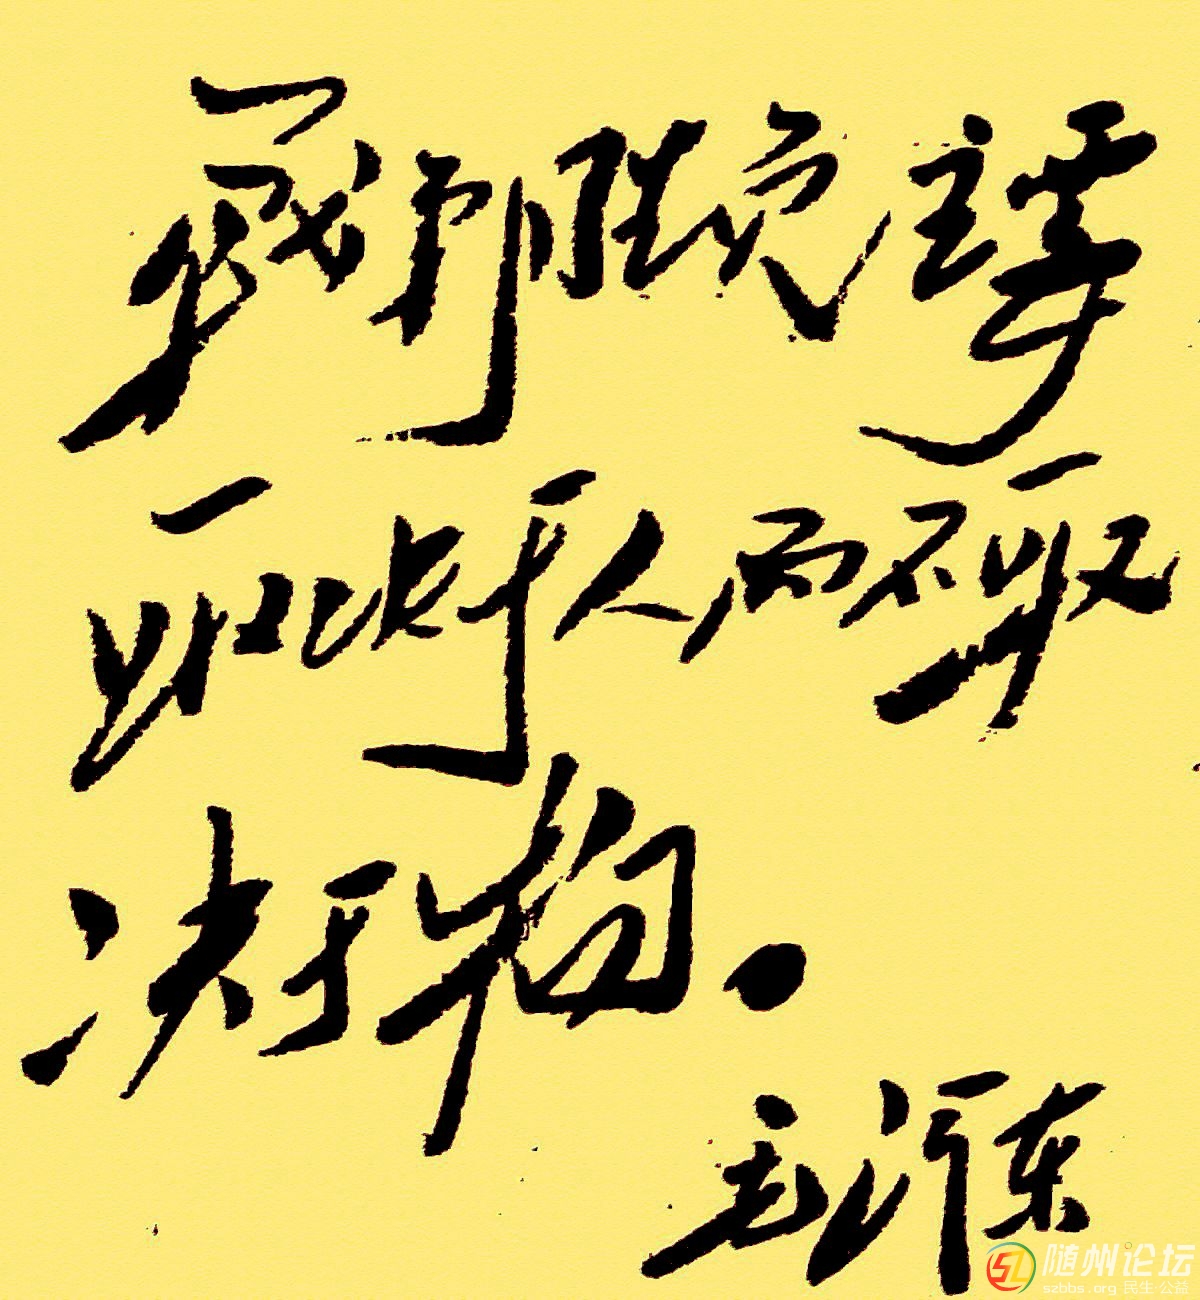 战争胜负,主要
取决于人,而不取
决于物。
毛泽东
随州论坛
szbbs.org 民生·公益